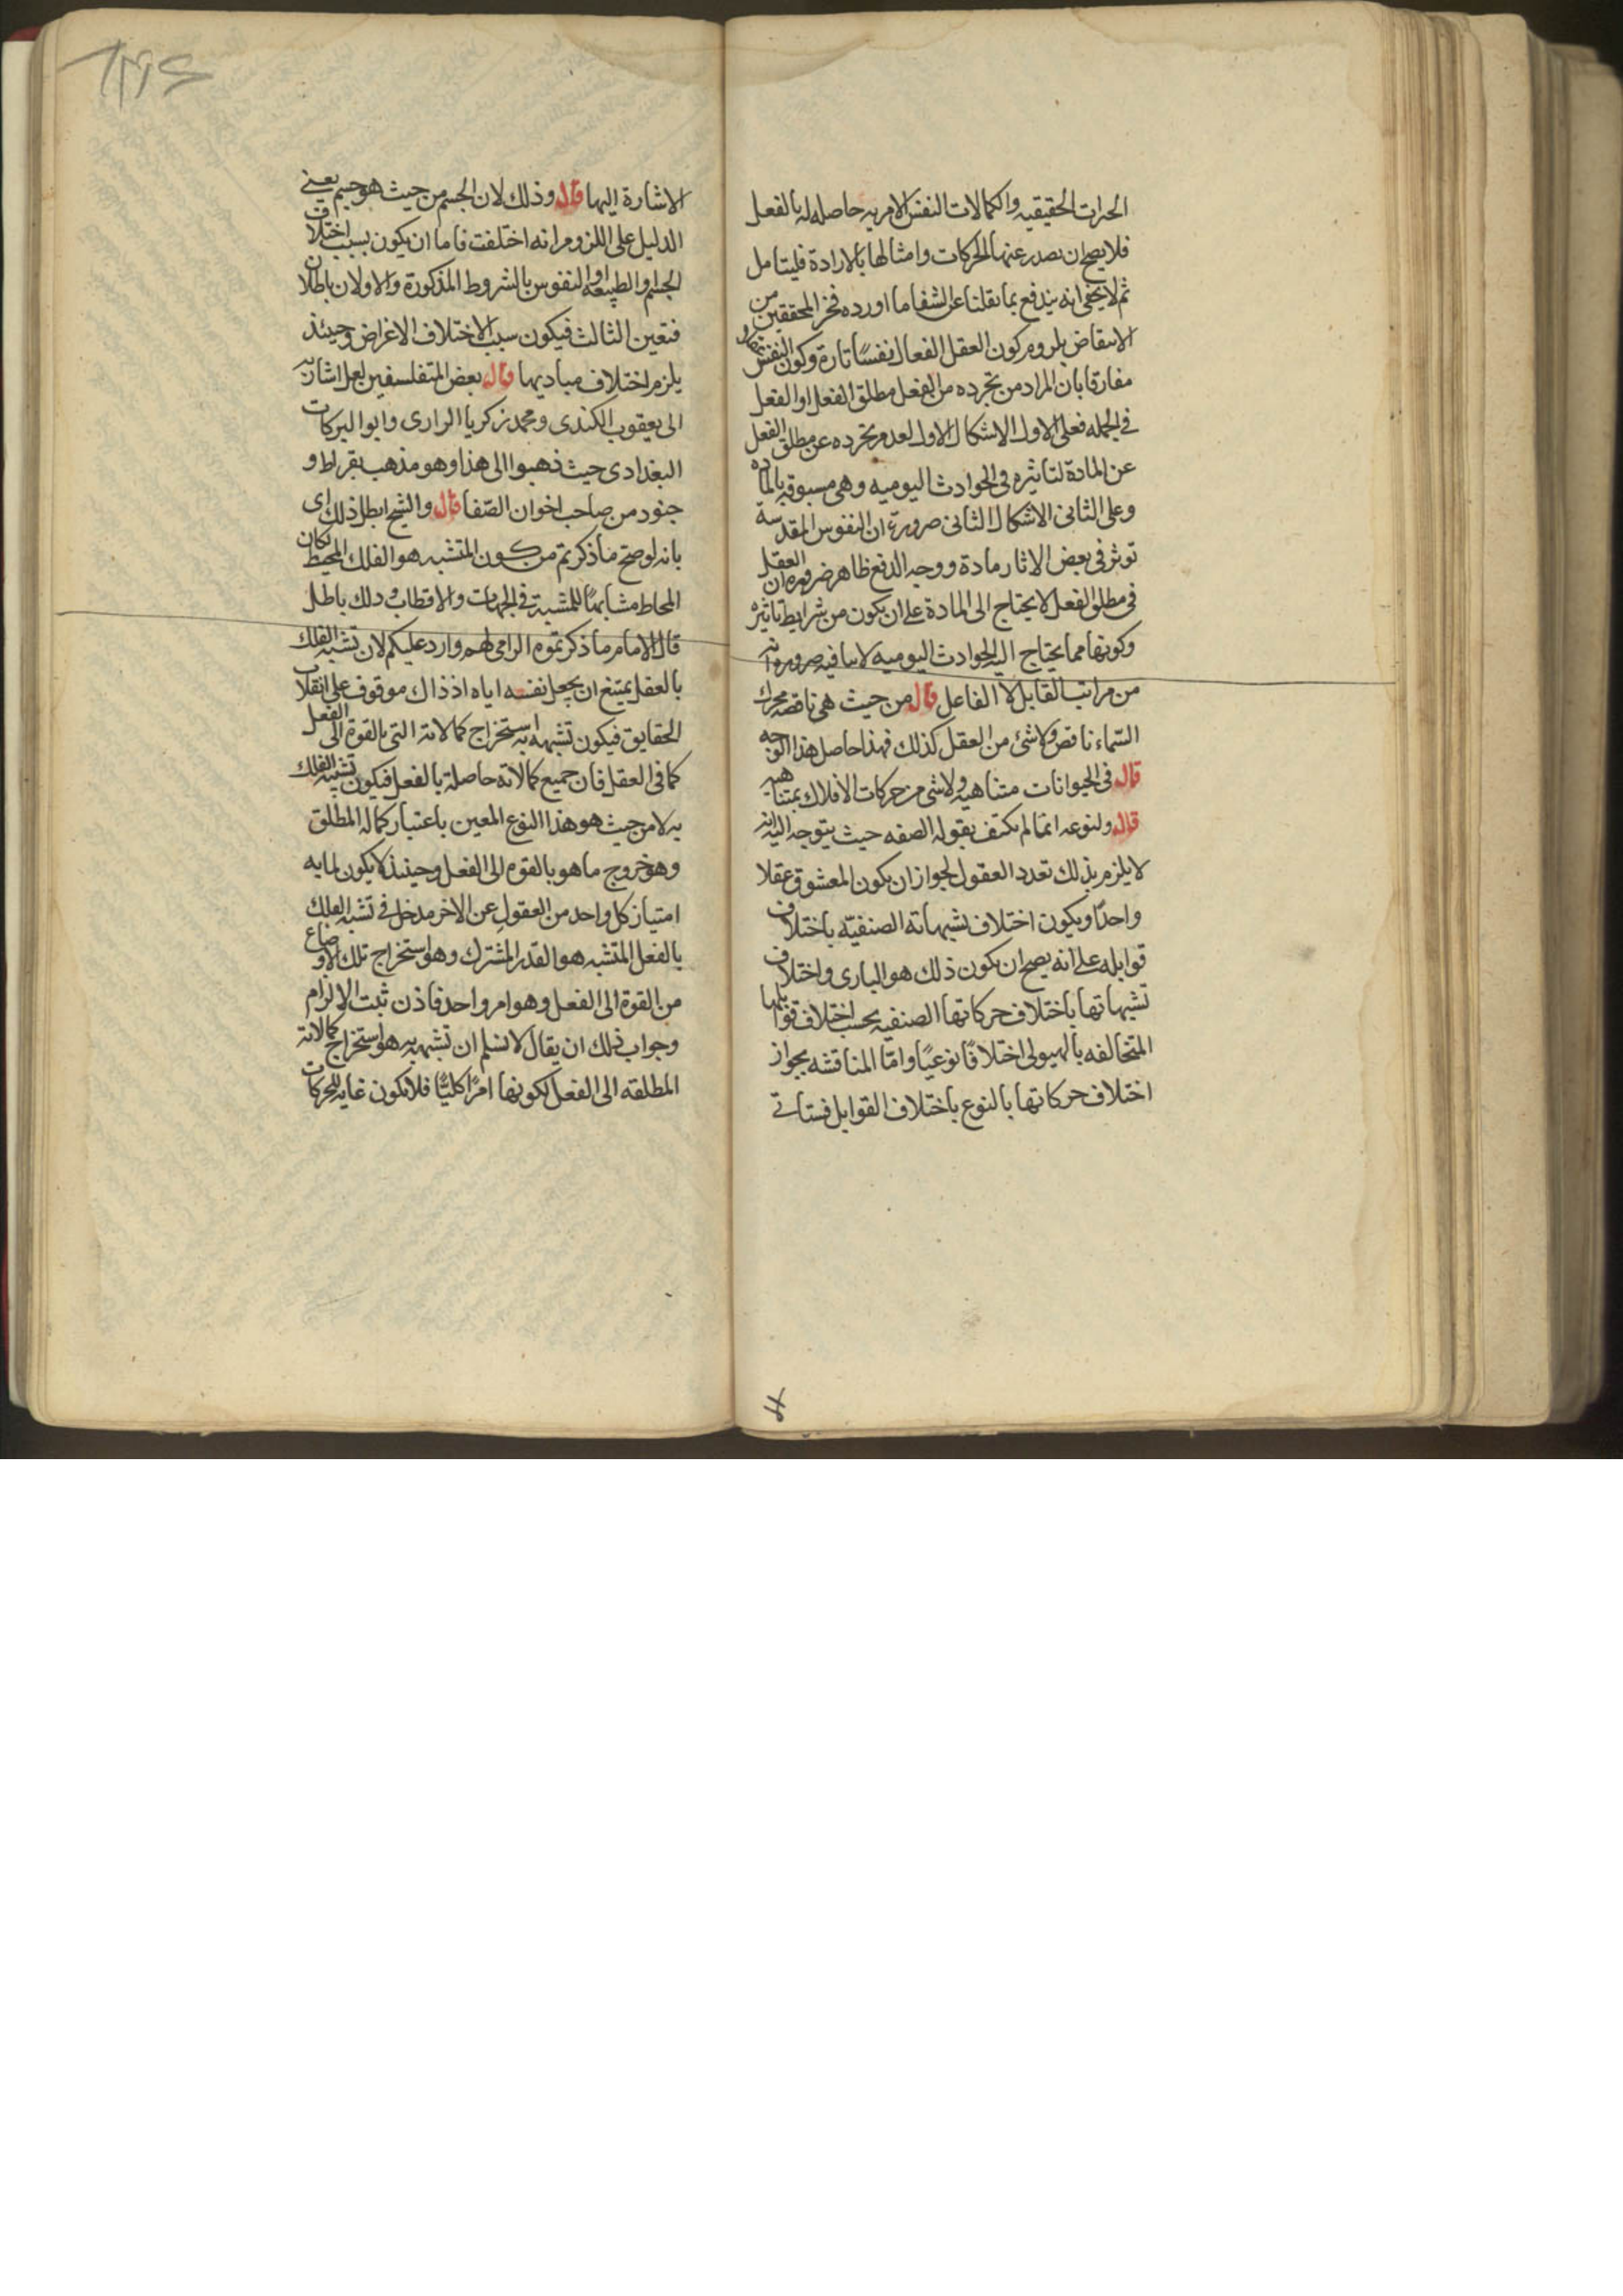 الحقيقيه والكمالات النفس الامريه حاصله له بالفعل
فلا يصح ان يصدر عنها الحركات وامثالها بالارادة فليتامل
ثم لا يخفى انه يندفع بما نقلنا عن الشفا ما اورده فخر المحققين من
الانتقاض بلزوم كون العقل الفعال نفسًا تارة وكون النفس
مفارقا بان المراد من تجرده من الفعل مطلق الفعل او الفعل
فى الجمله فعلى الاول الاشكال الاول لعدم تجرده عن مطلق الفعل
عن المادة لتاثيره فى الحوادث اليوميه وهى مسبوقه بالماده
وعلى الثانى الاشكال الثانى ضرورة ان النفوس المقدسة
توثر فى بعض الاثار مادة ووجه الدفع ظاهر ضروره ان العقل
فى مطلق الفعل لا يحتاج الى المادة على ان يكون من شرايط تاثيره
وكونها مما يحتاج اليه الحوادث اليوميه لا ينافيه ضرورة انه
من مراتب القابل لا الفاعل قال من حيث هى ناقصه محرك
السّماء ناقص ولا شئ من العقل كذلك فهذا حاصل هذا الوجه
قال فى الحيوانات متناهيه ولا شى من حركات الافلاك بمتناهيه
قال ولنوعه انما لم يكتف بقوله الصفه حيث يتوجه اليه انه
لا يلزم بذلك تعدد العقول لجواز ان يكون المعشوق عقلا
واحدًا ويكون اختلاف تشبهاته الصنفيّه باختلاف
قوابله على انه يصح ان يكون ذلك هو البارى واختلاف
تشبهاتها باختلاف حركاتها الصنفيه بحسب اختلاف قوابلها
المتخالفه بالهيولى اختلافًا نوعيًا وامّا المناقشه بجواز
اختلاف حركاتها بالنوع باختلاف القوابل فستاتى
الاشارة اليها قال وذلك لان الجسم من حيث هو جسم يعنى
الدليل على اللزوم انه اختلفت فاما ان يكون بسبب اختلاف
الجسم والطبيعه او النفوس بالشروط المذكورة والاولان باطلان
فتعين الثالث فيكون سبب الاختلاف الاغراض وحينئذ
يلزم اختلاف مباديها قال بعض المتفلسفين لعل اشارته
الى يعقوب الكندى ومحمد زكريا الرازى وابو البركات
البغدادى حيث ذهبوا الى هذا وهو مذهب بقراط و
جنود من صاحب اخوان الصّفا قال والشيخ ابطل ذلك اى
بانه لو صح ما ذكرتم من كون المتشبه هو الفلك المحيط لكان
المحاط مشابهًا للمشبه فى الجهات والاقطاب وذلك باطل
قال الامام ما ذكرتموه الزامى لهم وارد عليكم لان تشبه الفلك
بالعقل يمتنع ان يجعل نفسه اياه اذ ذاك موقوف على انقلاب
الحقايق فيكون تشبهه به استخراج كمالاته التى بالقوة الى الفعل
كما فى العقل فان جميع كمالاته حاصلة بالفعل فيكون تشبه الفلك
به لا من حيث هو هذا النوع المعين باعتبار كماله المطلق
وهو خروج ما هو بالقوه الى الفعل وحينئذ لا يكون لما به
امتياز كل واحد من العقول عن الاخر مدخل فى تشبه الفلك
بالفعل المتشبه هو القدر المشترك وهو استخراج تلك الاوضاع
من القوة الى الفعل وهو امر واحد فاذن ثبت الالزام
وجواب ذلك ان يقال لا نسلم ان تشبهه به هو استخراج كمالاته
المطلقه الى الفعل لكونها امرًا كليًّا فلا يكون غايه للحركات